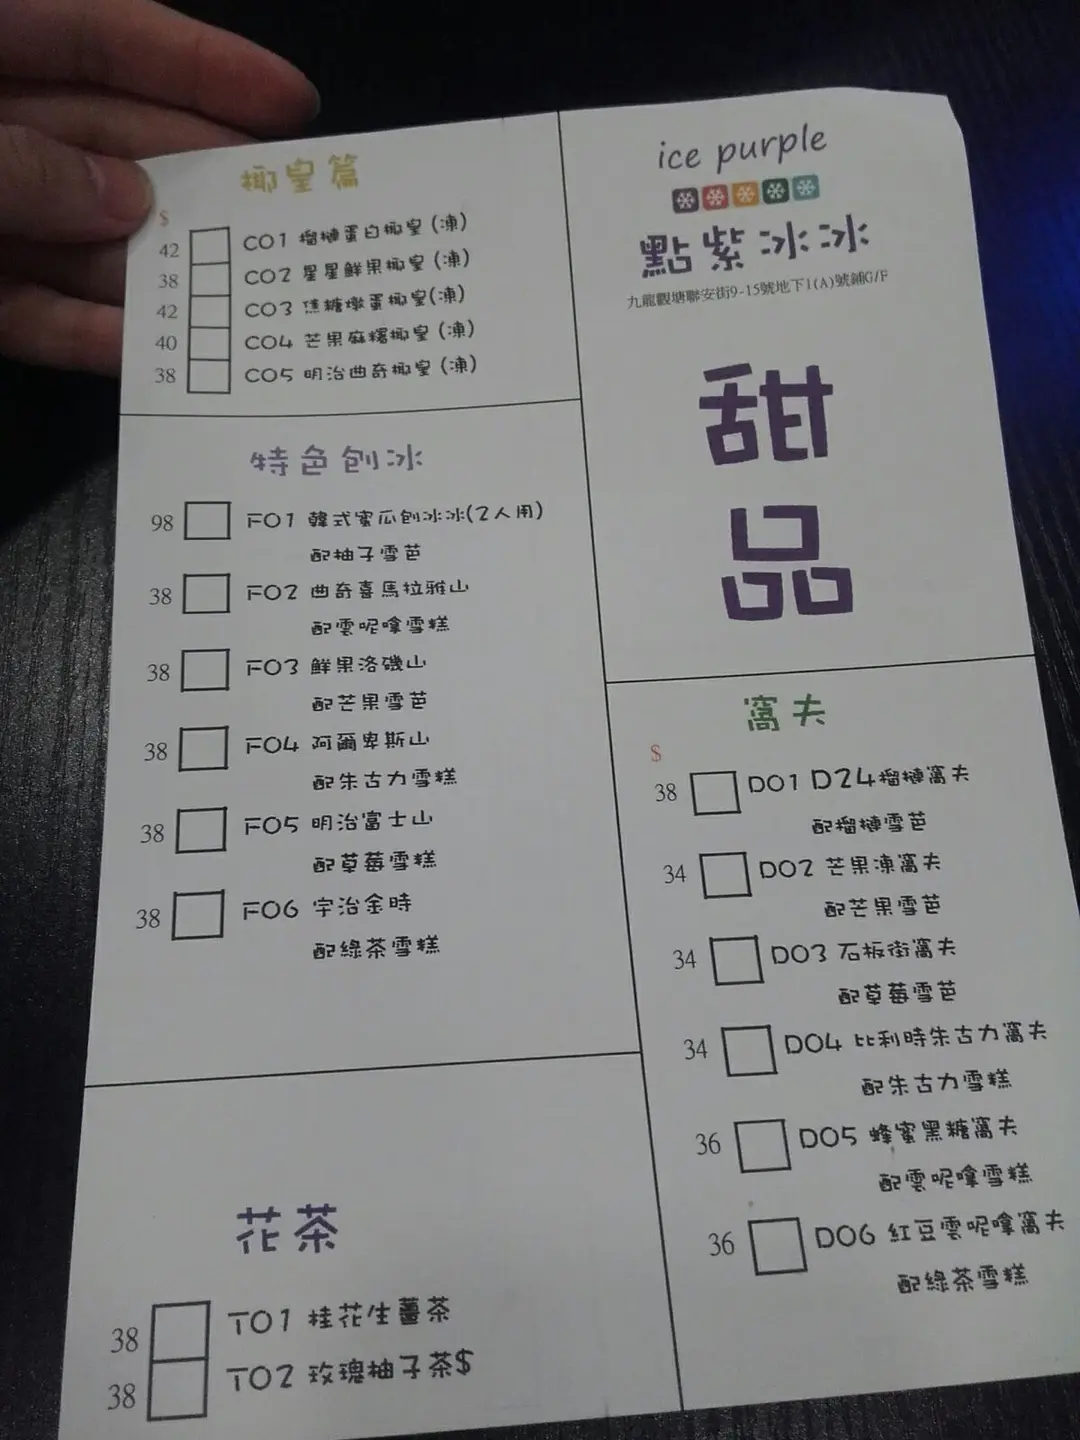 ice purple
點紫冰冰
九龍觀塘聯安街9-15號地下1(A)號鋪G/F
甜
品
椰皇篇
$
42 C01 榴槤蛋白椰皇 (凍)
38 C02 星星鮮果椰皇 (凍)
42 C03 焦糖燉蛋椰皇(凍)
40 C04 芒果麻糬椰皇 (凍)
38 C05 明治曲奇椰皇 (凍)
特色刨冰
98 F01 韓式蜜瓜刨冰冰(2人用)
配柚子雪芭
38 F02 曲奇喜馬拉雅山
配雲呢拿雪糕
38 F03 鮮果洛磯山
配芒果雪芭
38 F04 阿爾卑斯山
配朱古力雪糕
38 F05 明治富士山
配草莓雪糕
38 F06 宇治金時
配綠茶雪糕
花茶
38 T01 桂花生薑茶
38 T02 玫瑰柚子茶$
窩夫
$
38 D01 D24榴槤窩夫
配榴槤雪芭
34 D02 芒果凍窩夫
配芒果雪芭
34 D03 石板街窩夫
配草莓雪芭
34 D04 比利時朱古力窩夫
配朱古力雪糕
36 D05 蜂蜜黑糖窩夫
配雲呢拿雪糕
36 D06 紅豆雲呢拿窩夫
配綠茶雪糕